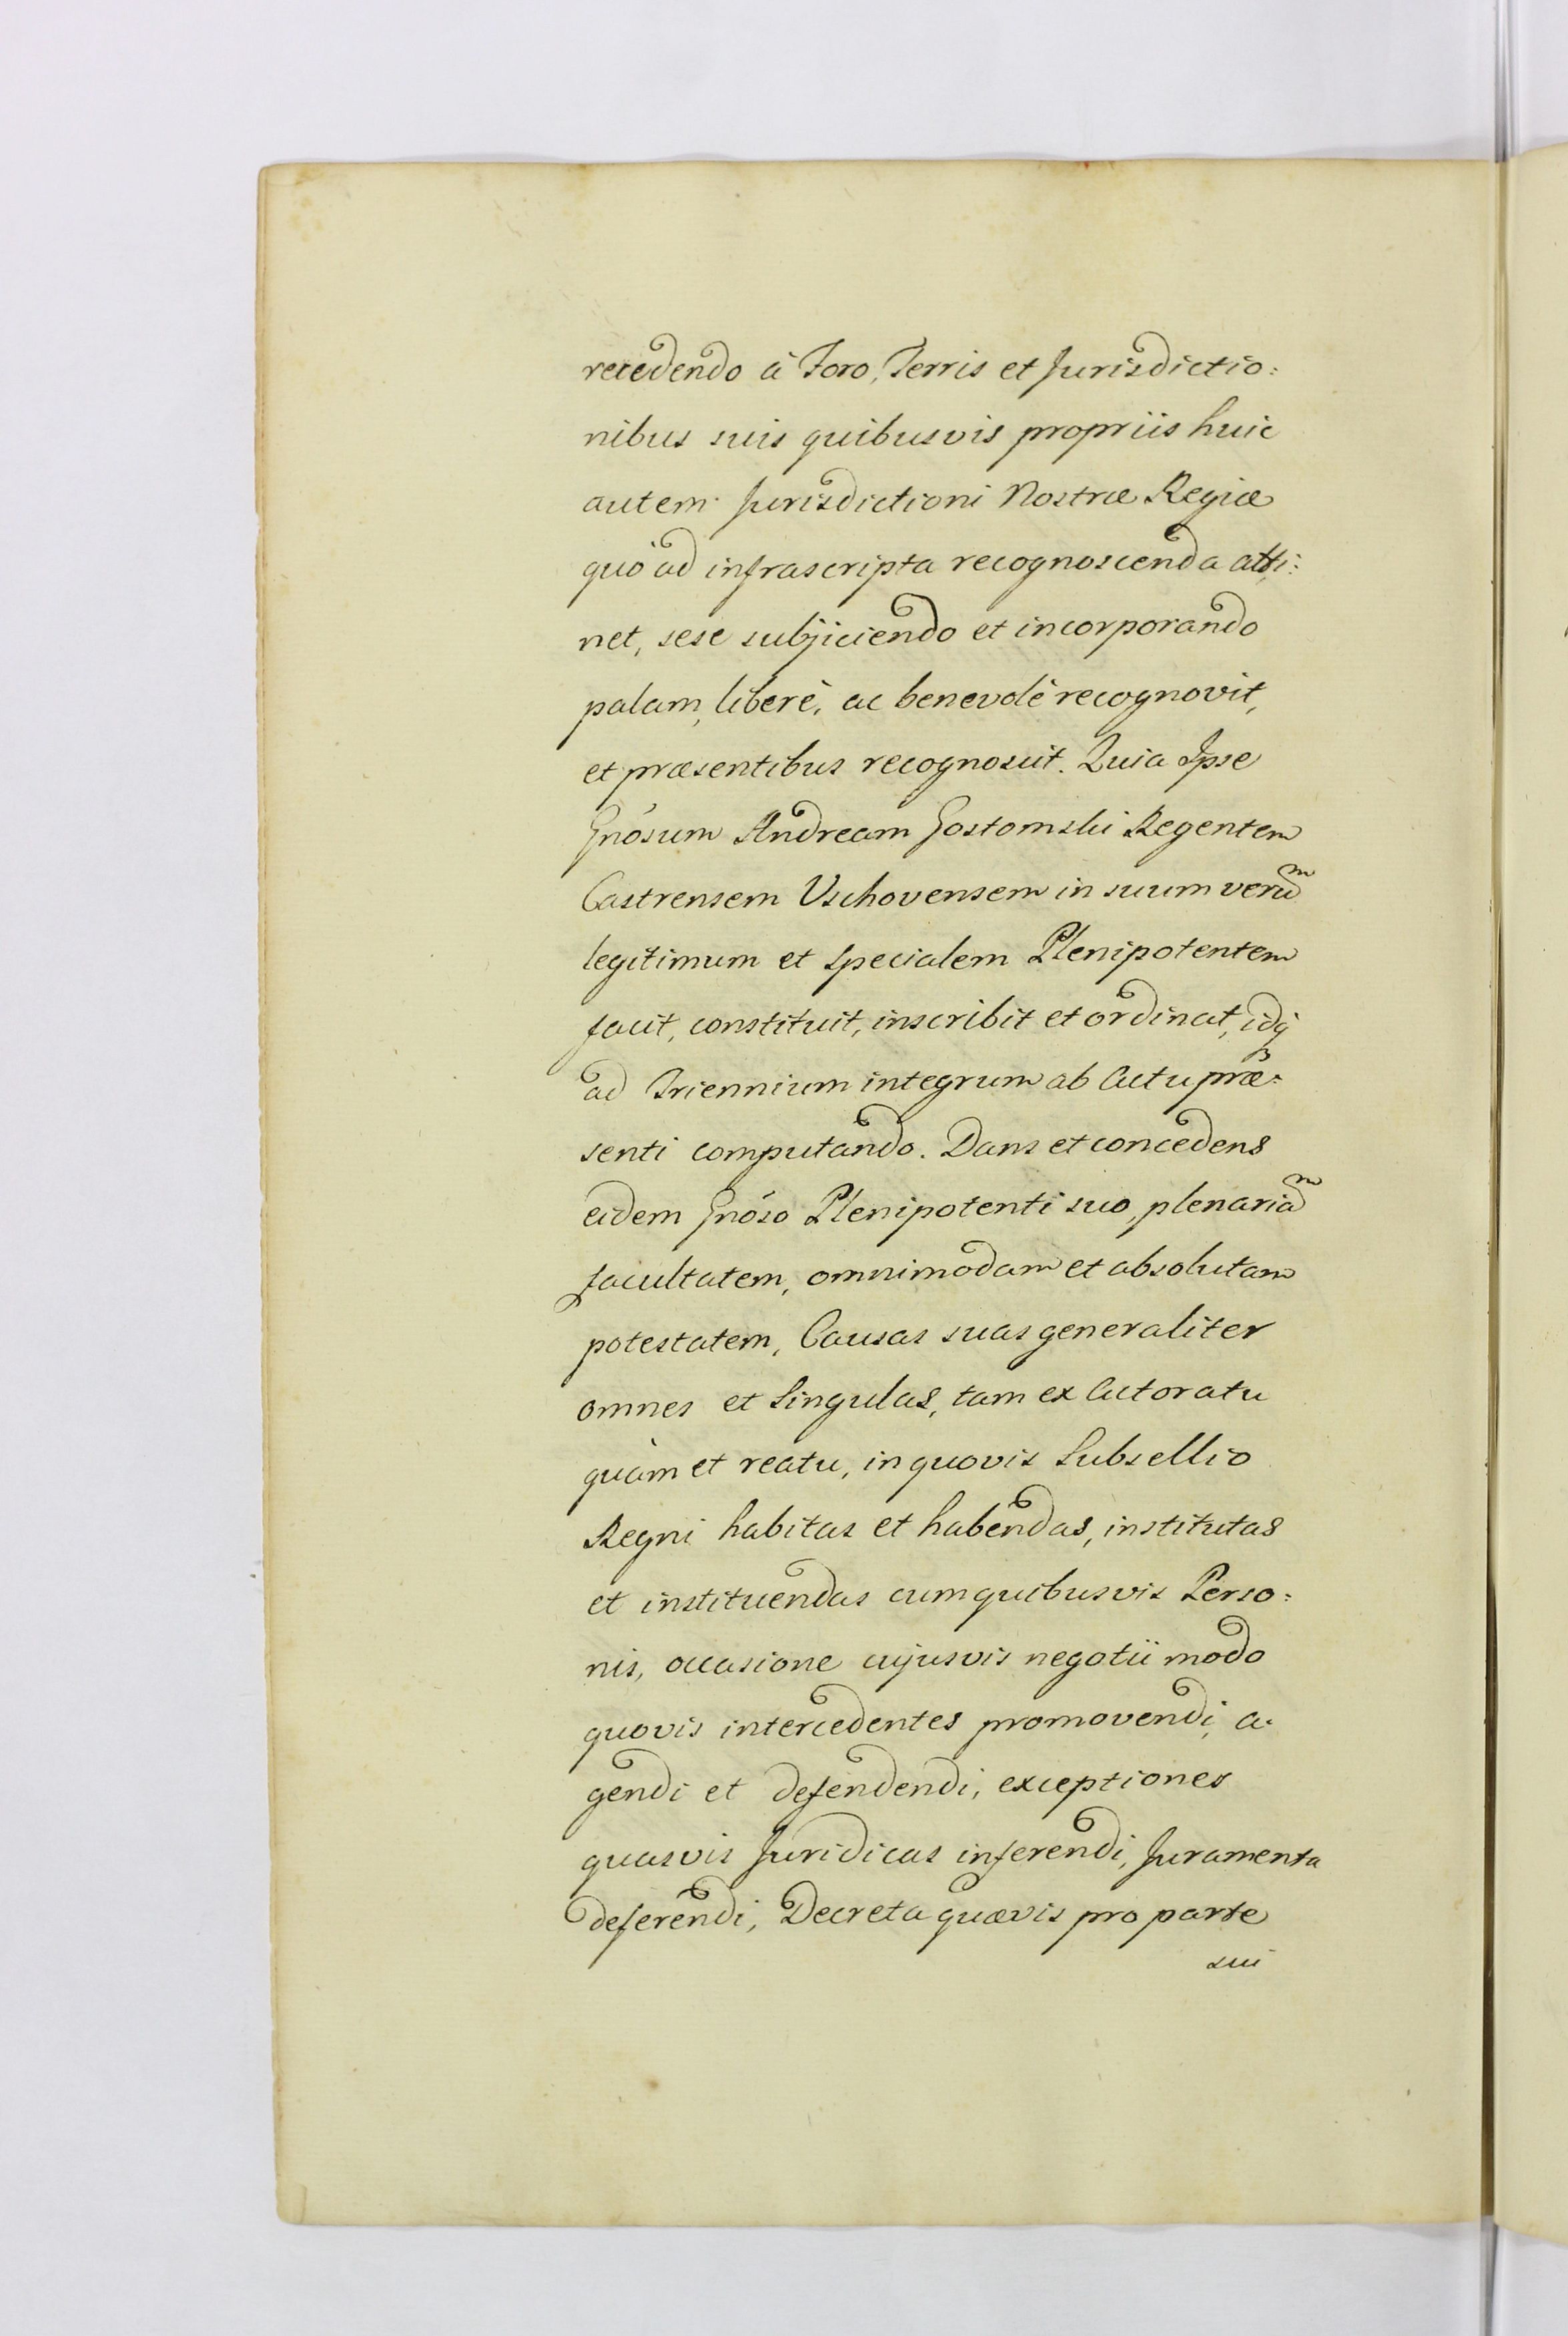 recedendo à Foro, Terris et Jurisdictio:
nibus suis quibusvis propriis huic
autem Jurisdictioni Nostræ Regiæ
quò ad infrascripta recognoscenda atti:
net, sese subjiciendo et incorporando
palam, liberè, ac benevolè recognovit,
et præsentibus recognoscit. Quia Ipse
Gnósum Andream Gostomski Regentem
Castrensem Vschovensem in suum verũ
legitimum et specialem Plenipotentem
facit, constituit, inscribit et ordinat, idq́
ad Triennium integrum ab Actu præ:
senti computando. Dans et concedens
eidem Gnóso Plenipotenti suo, plenariã
facultatem, omnimodam et absolutam
potestatem, Causas suas generaliter
omnes et Singulas, tam ex Actoratu
quàm et reatu, in quovis Subsellio
Regni habitas et habendas, institutas
et instituendas cum quibusvis Perso:
nis, occasione cujusvis negotii modo
quovis intercedentes promovendi, a-
gendi et defendendi, exceptiones
quasvis Juridicas inferendi, Juramenta
deferendi, Decreta quævis pro parte
sui